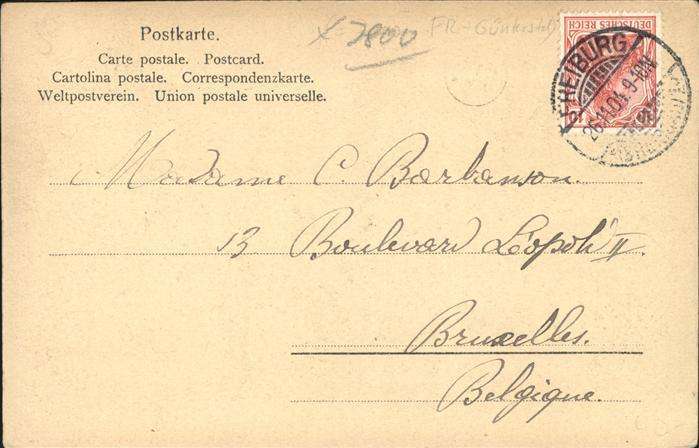 Postkarte.
Carte postale. Postcard.
Cartolina postale. Correspondenzkarte.
Weltpostverein. Union postale universelle.
7800 FR-Günterstal
DEUTSCHES REICH
FREIBURG
26.11.04. 9-10N.
Madame C. Barbanson.
13 Boulevard Léopold II
Bruxelles.
Belgique.